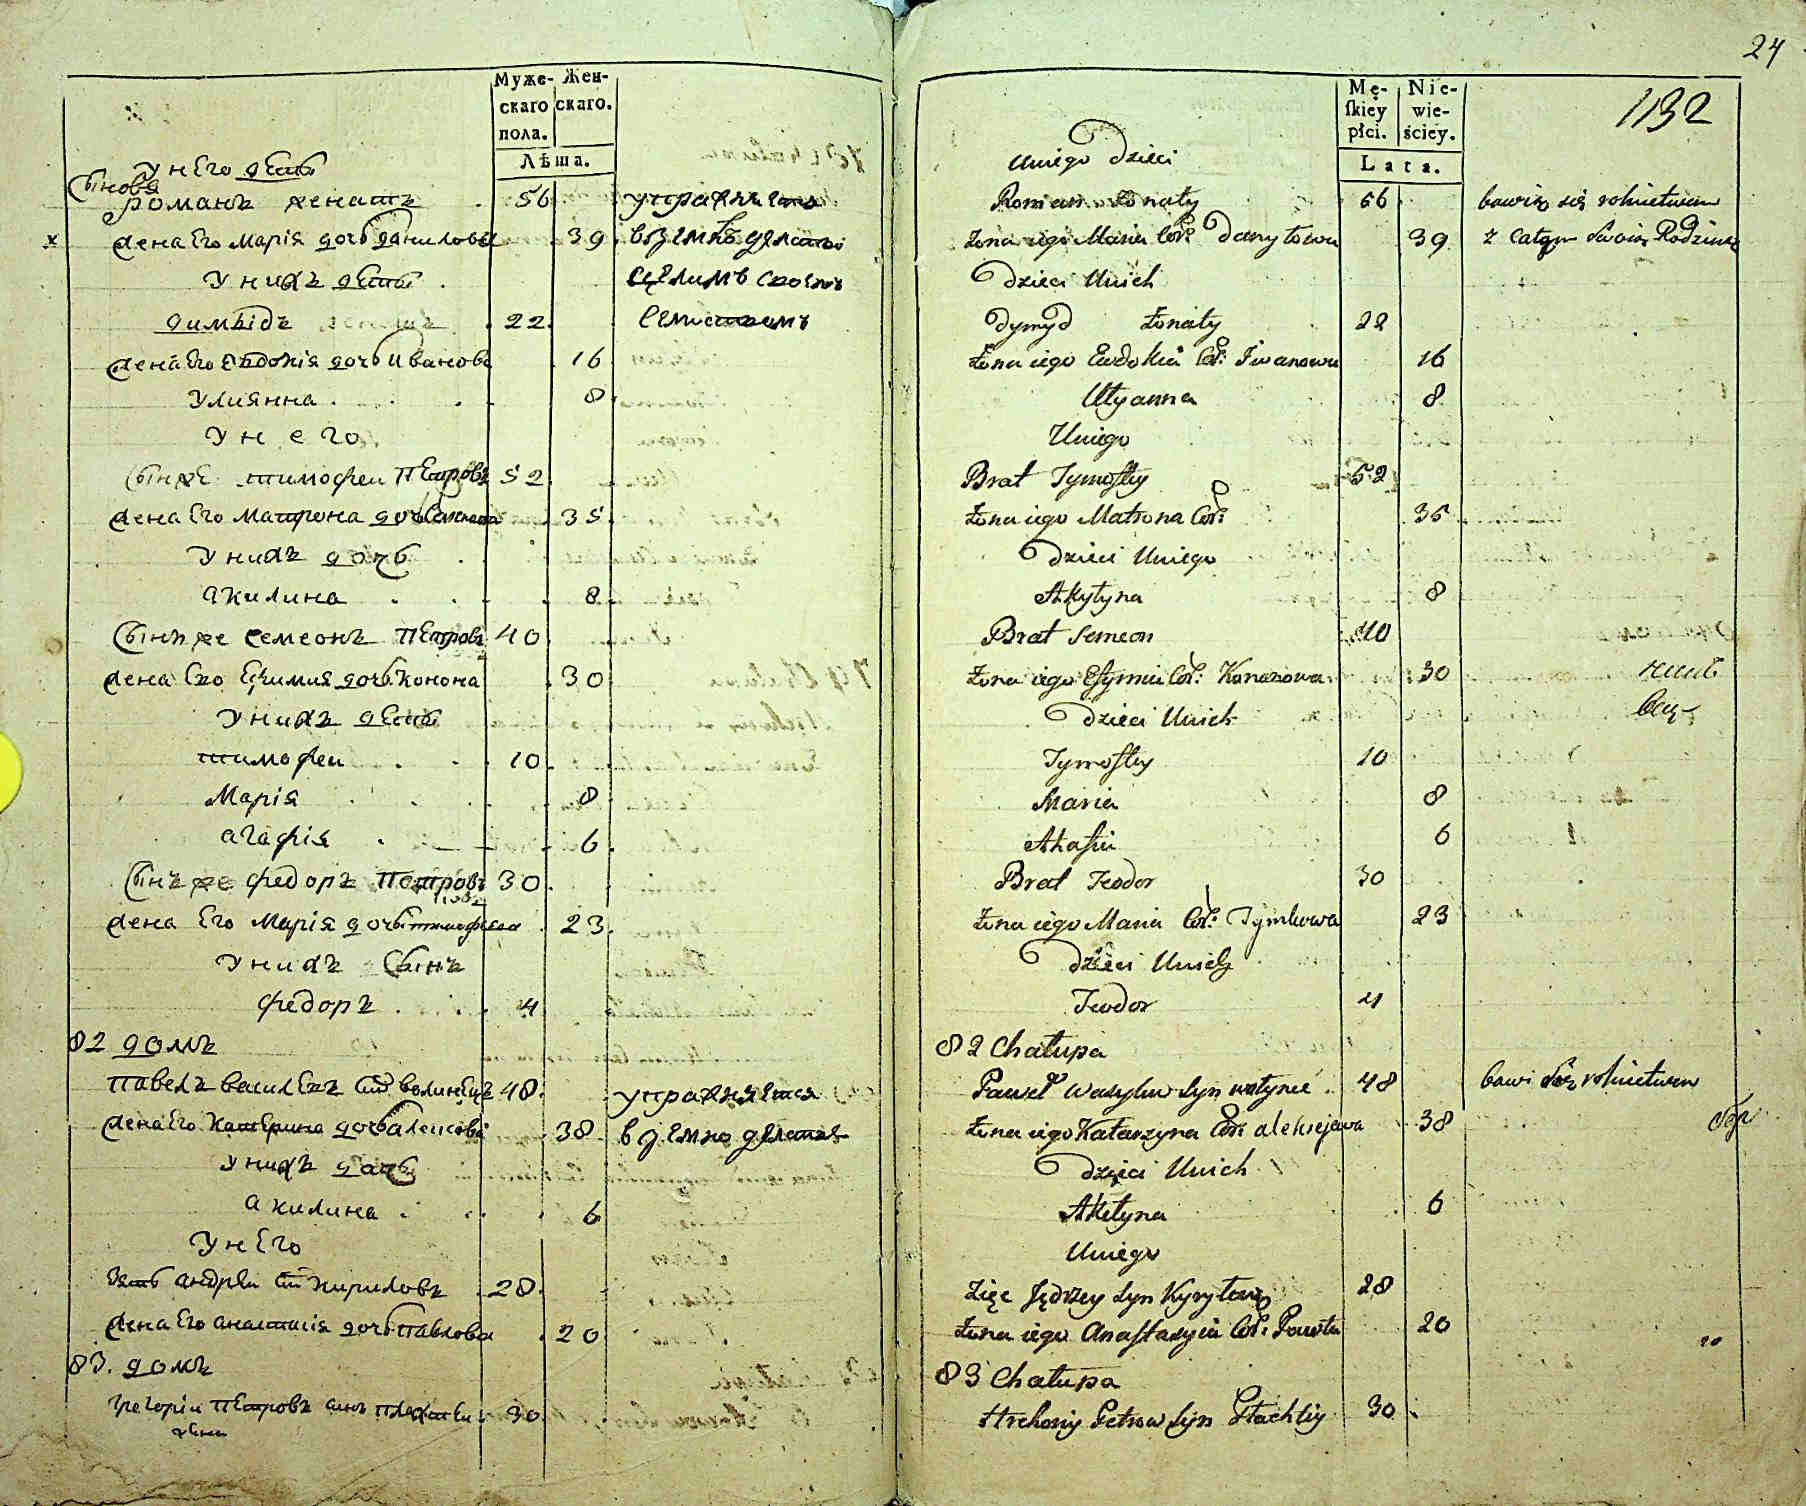 Муже-
скаго
пола.
Жен-
скаго.
Лѣта.
у него дѣти
Сыновя
романъ женатъ 56
жена Его марія дочь данилова 39 в земледелство
у нихъ дѣти
димидъ 22
жена Его евдокія дочь иванова 16
улиянна 8
у него
Сынъ же тимофеи петровъ 52
жена Его матрона дочь 35
у нихъ дочь
акилина 8
Сынъ же семеонъ петровъ 40
жена Его Ефимия дочь конона 30
у нихъ дѣти
тимофеи 10
марія 8
агафія 6
Сынъ же федоръ петровъ 30
жена Его марія дочь 23
у нихъ Сынъ
федоръ 4
82 домъ
павелъ василевъ 48 упражняется
жена Его катерина дочь алексѣева 38
у нихъ дочь
акилина 6
у него
зять андреи кириловъ 28
жена Его анастасія дочь павлова 20
83. домъ
григоріи петровъ синъ 30
жена
24
Mę-
skiey
płci.
Nie-
wie-
ściey.
Lata.
1132
Uniego Dzieci
Roman Żonaty 56 bawią się rolnictwem
Żona iego Maria Cór: Danyłowa 39 z całym Swoią Rodziną
Dzieci Unich
Dymyd Żonaty 22
Żona iego Ewdokia Cór: Iwanowa 16
Ulyanna 8
Uniego
Brat Tymofiy 52
Żona iego Matrona Cór: 35
Dzieci Uniego
Akylyna 8
Brat Semeon 40
Żona iego Efymia Cór: Kononowa 30
Dzieci Unich
Tymofiy 10
Maria 8
Ahafia 6
Brat Teodor 30
Żona iego Maria Cór: Tymkowa 23
Dzieci Unich
Teodor 4
82 Chałupa
Paweł Wasylów Syn 48 bawi Się rolnictwem
Żona iego Katarzyna Cór: alexiejewa 38
Dzieci Unich
Akilyna 6
Uniego
Zięc Jędrzey Syn Kyryłow 28
Żona iego Anastazyia Cór: Pawła 20
83 Chałupa
Hrehory Petrow Syn 30